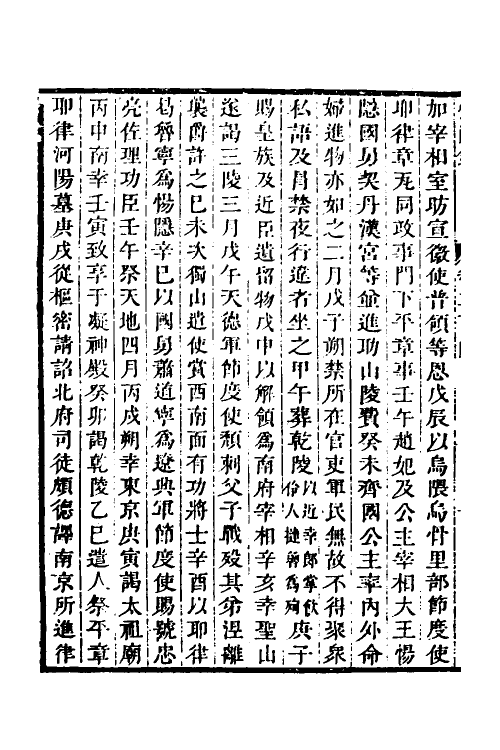 加宰相室昉宣徽使普領等恩戊辰以烏隈烏骨里部節度使
耶律章瓦同政事門下平章事壬午趙妃及公主宰相大王惕
隱國舅契丹漢官等僉進助山陵費癸未齊國公主率內外命
婦進物亦如之二月戊子朔禁所在官吏軍民無故不得聚衆
私語及冒禁夜行違者坐之甲午葬乾陵以近幸郎掌飲伶人撻魯為殉庚子
賜皇族及近臣遺留物戊申以解領為南府宰相辛亥幸聖山
遂謁三陵三月戊午天德軍節度使頹剌父子戰歿其弟涅離
襲爵許之己未次獨山遣使賞西南面有功將士辛酉以耶律
曷魯寧為惕隱辛巳以國舅蕭道寧為遼興軍節度使賜號忠
亮佐理功臣壬午祭天地四月丙戌朔幸東京庚寅謁太祖廟
丙申南幸壬寅致享于凝神殿癸卯謁乾陵乙巳遣人祭平章
耶律河陽墓庚戌從樞密請詔北府司徒頗德譯南京所進律